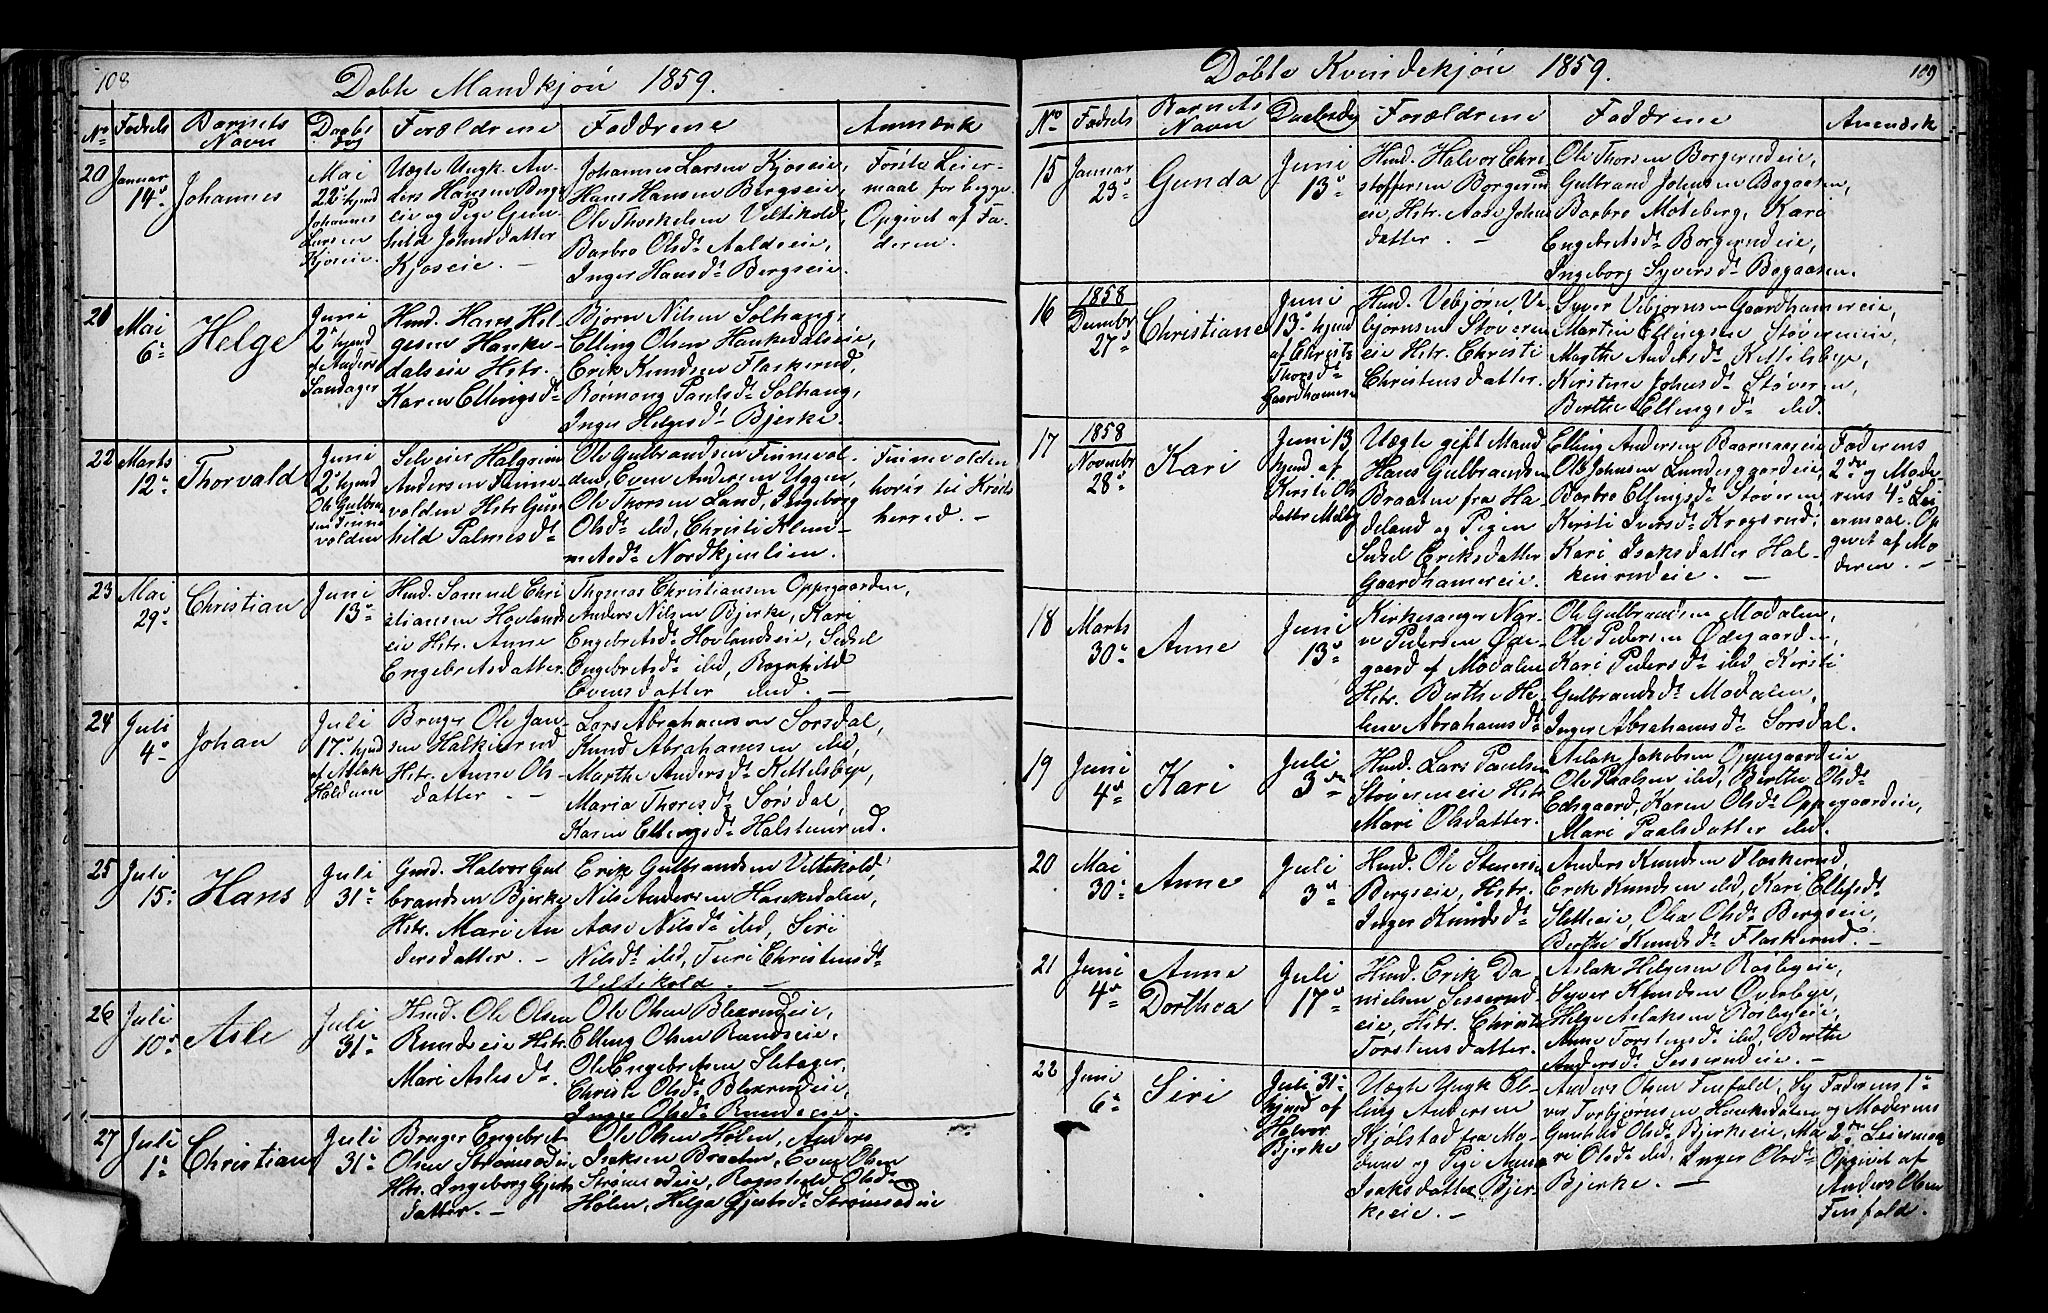 108
Døbte Mandkjøn 1859.
No Fødsels Barnets Navn Daabs dag Forældrene Faddrene Anmærk
20 Januar 14de Johannes
Mai 22de hjmd Johannes Larsen Kjøseie.
Uægte Ungk. An-
ders Hansen Bergs
eie og Pige Gun-
hild Johnsdatter
Kjoseie. —
Johannes Larsen Kjoseie,
Hans Hansen Bergseie,
Ole Thorkelsen Veltikold,
Barbro Olsdt Aaldseie,
Inger Hansdt Bergseie.
Første Leier-
maal for begge.
Opgivet af Fa-
deren.
21 Mai 6te Helge
Juni 2den hjmd af Anders Sandager
Husd. Hans Hel-
gesen Hanke-
dalseie Hstr.
Karen Ellingsdt
Bjørn Nilsen Solhaug,
Elling Olsen Hankedalseie,
Erik Knudsen Flaskerud,
Rønnoug Paulsdt Solhaug,
Inger Helgesdt Bjerke.
22 Marts 12te Thorvald
Juni 2den hjmd Ole Gulbrandsen Finnevolden
Selveier Halgrim
Andersen Finne-
volden Hstr Gun
hild Palmesdt
Ole Gulbrandsen Finnevol-
den, Even Andersen Uggen,
Ole Thorsen Land, Ingeborg
Olsdt ibd, Christi Klem-
metsdt Nordkjenlien.
Finnevolden
hører til Krøds
herred. —
23 Mai 29de Christian
Juni 13de
Husd. Samuel Chri
stiansen Hovlands
eie Hstr. Anne
Engebretsdatter.
Thomas Christiansen Oppegaarden,
Anders Nilsen Bjerke, Kari
Engebretsdt Hovlandseie, Sidsel
Engebretsdt ibd, Ragnhild
Evensdatter ibd. —
24 Juli 4de Johan
Juli 17de hjmd af Aslak Haldum
Bruger Ole Jan-
sen Halkinrud
Hstr. Anne Ols-
datter. —
Lars Abrahamsen Sørsdal,
Knud Abrahamsen ibd,
Marthe Andersdt Kettelsbye,
Maria Thoresdt Sørsdal,
Karen Ellingsdt Halstenrud.
25 Juli 15de Hans
Juli 31te
Gmd. Halvor Gul
brandsen Bjerke
Hstr. Mari An
dersdatter. —
Erik Gulbrandsen Veltikold,
Nils Andersen Hankedalen,
Aase Nilsdt ibd, Siri
Nilsdt ibd, Turi Christensdt
Veltikold. —
26 Juli 10de Asle
Juli 31te
Husd. Ole Olsen
Rundseie Hstr.
Mari Aslesdt.
Ole Olsen Blexrudeie,
Elling Olsen Rundseie,
Ole Engebretsen Sletager,
Christi Olsdt Blexrudeie,
Inger Olsdt Rundseie.
27 Juli 1te Christian
Juli 31te
Bruger Engebret
Olsen Strømsodeie
Hstr. Ingeborg Gjerts
datter. —
Ole Olsen Hølen, Anders
Isaksen Braaten, Even Olsen
Strømsodeie, Ragnhild Olsdt
Hølen, Helga Gjertsdt Strømsodeie
Døbte Kvindekjøn 1859.
109
No Fødsels Barnets Navn Daabsdag Forældrene Faddrene Anmdsk
15 Januar 23de Gunda
Juni 13de
Husd. Halvor Chri-
stoffersen Borgerud
eie, Hstr. Aase Johns
datter. —
Ole Thorsen Borgerudeie,
Gulbrand Johnsen Bogaasen,
Barbro Moteberg, Kari
Engebretsdt Borgerudeie,
Ingeborg Syversdt Bogaasen.
16 1858 Decembr 27de Christiane
Juni 13de hjmd af Christi Thorsdt Gaardhammeren
Husd. Vebjørn Ve-
bjørnsen Støveren
eie Hstr. Christi
Christensdatter.
Syver Vebjørnsen Gaardhamereie,
Martin Ellingsen Støvereneie,
Marthe Andersdt Kettelsbye,
Kirstine Johnsdt Støveren,
Berthe Ellingsdt ibd.
17 1858 Novembr 28de Kari
Juni 13 hjmd af Kirsti Olsdatter Melby
Uægte gift Mand
Hans Gulbrandsen
Braaten fra Ha-
deland og Pigen
Sidsel Eriksdatter
Gaardhamereie.
Elling Andersen Baarnaaseie
Ole Johnsen Lundesgaardeie,
Barbro Ellingsdt Støveren
Kirsti Iversdt Kregsrud,
Kari Isaksdatter Hal-
kinrudeie. —
Faderens
2den og Mode-
rens 4de Lei
ermaal. Op
givet af Mo
deren. —
18 Marts 30te Anne
Juni 13de
Kirkesanger Nar-
ve Pedersen Øde-
gaard af Modalen
Hstr. Berthe He-
lene Abrahamsdt
Ole Gulbrandsen Modalen,
Ole Pedersen Ødegaarden,
Kari Pedersdt ibd, Kirsti
Gulbrandsdt Modalen,
Inger Abrahamsdt Sørsdal.
19 Juni 4de Kari
Juli 3die
Husd. Lars Paulsen
Støverneeie Hstr
Mari Olsdatter.
Aslak Jakobsen Oppegaardeie
Ole Paalsen ibd, Berthe Olsdt
Edsgaard, Karen Olsdt Oppegaardeie,
Mari Paalsdatter ibd.
20 Mai 30te Anne
Juli 3die
Husd. Ole Steners.
Bergseie, Hstr.
Inger Knudsdt
Anders Knudsen Flaskerud,
Erik Knudsen ibd, Kari Ellefsdt
Sletteeie, Olea Olsdt Bergseie,
Berthe Knudsdt Flaskerud. —
21 Juni 4de Anne Dorthea
Juli 17de
Husd. Erik Da
nielsen Sesserud-
eie, Hstr. Christi
Torstensdatter.
Aslak Helgesen Rosbyeie,
Syver Knudsen Øverbye,
Helge Aslaksen Rosbyeie,
Anne Torstensdt ibd, Berthe
Andersdt Sesserudeie. —
22 Juni 6te Siri
Juli 31te hjmd af Halvor Bjerke
Uægte Ungk El-
ling Andersen
Kjølstad fra Mo-
dum og Pige Anne
Isaksdatter Bjer-
keeie. —
Anders Olsen Finfold, Sy
ver Torbjørnsen Hankedalen
Gunhild Olsdt Bjerkeeie, Ma
ri Olsdt ibd, Inger Olsdt
Bjerke. —
Faderens 1te
og Moderens
2den Leiermaal
Opgivet af
Anders Olsen
Finfold.